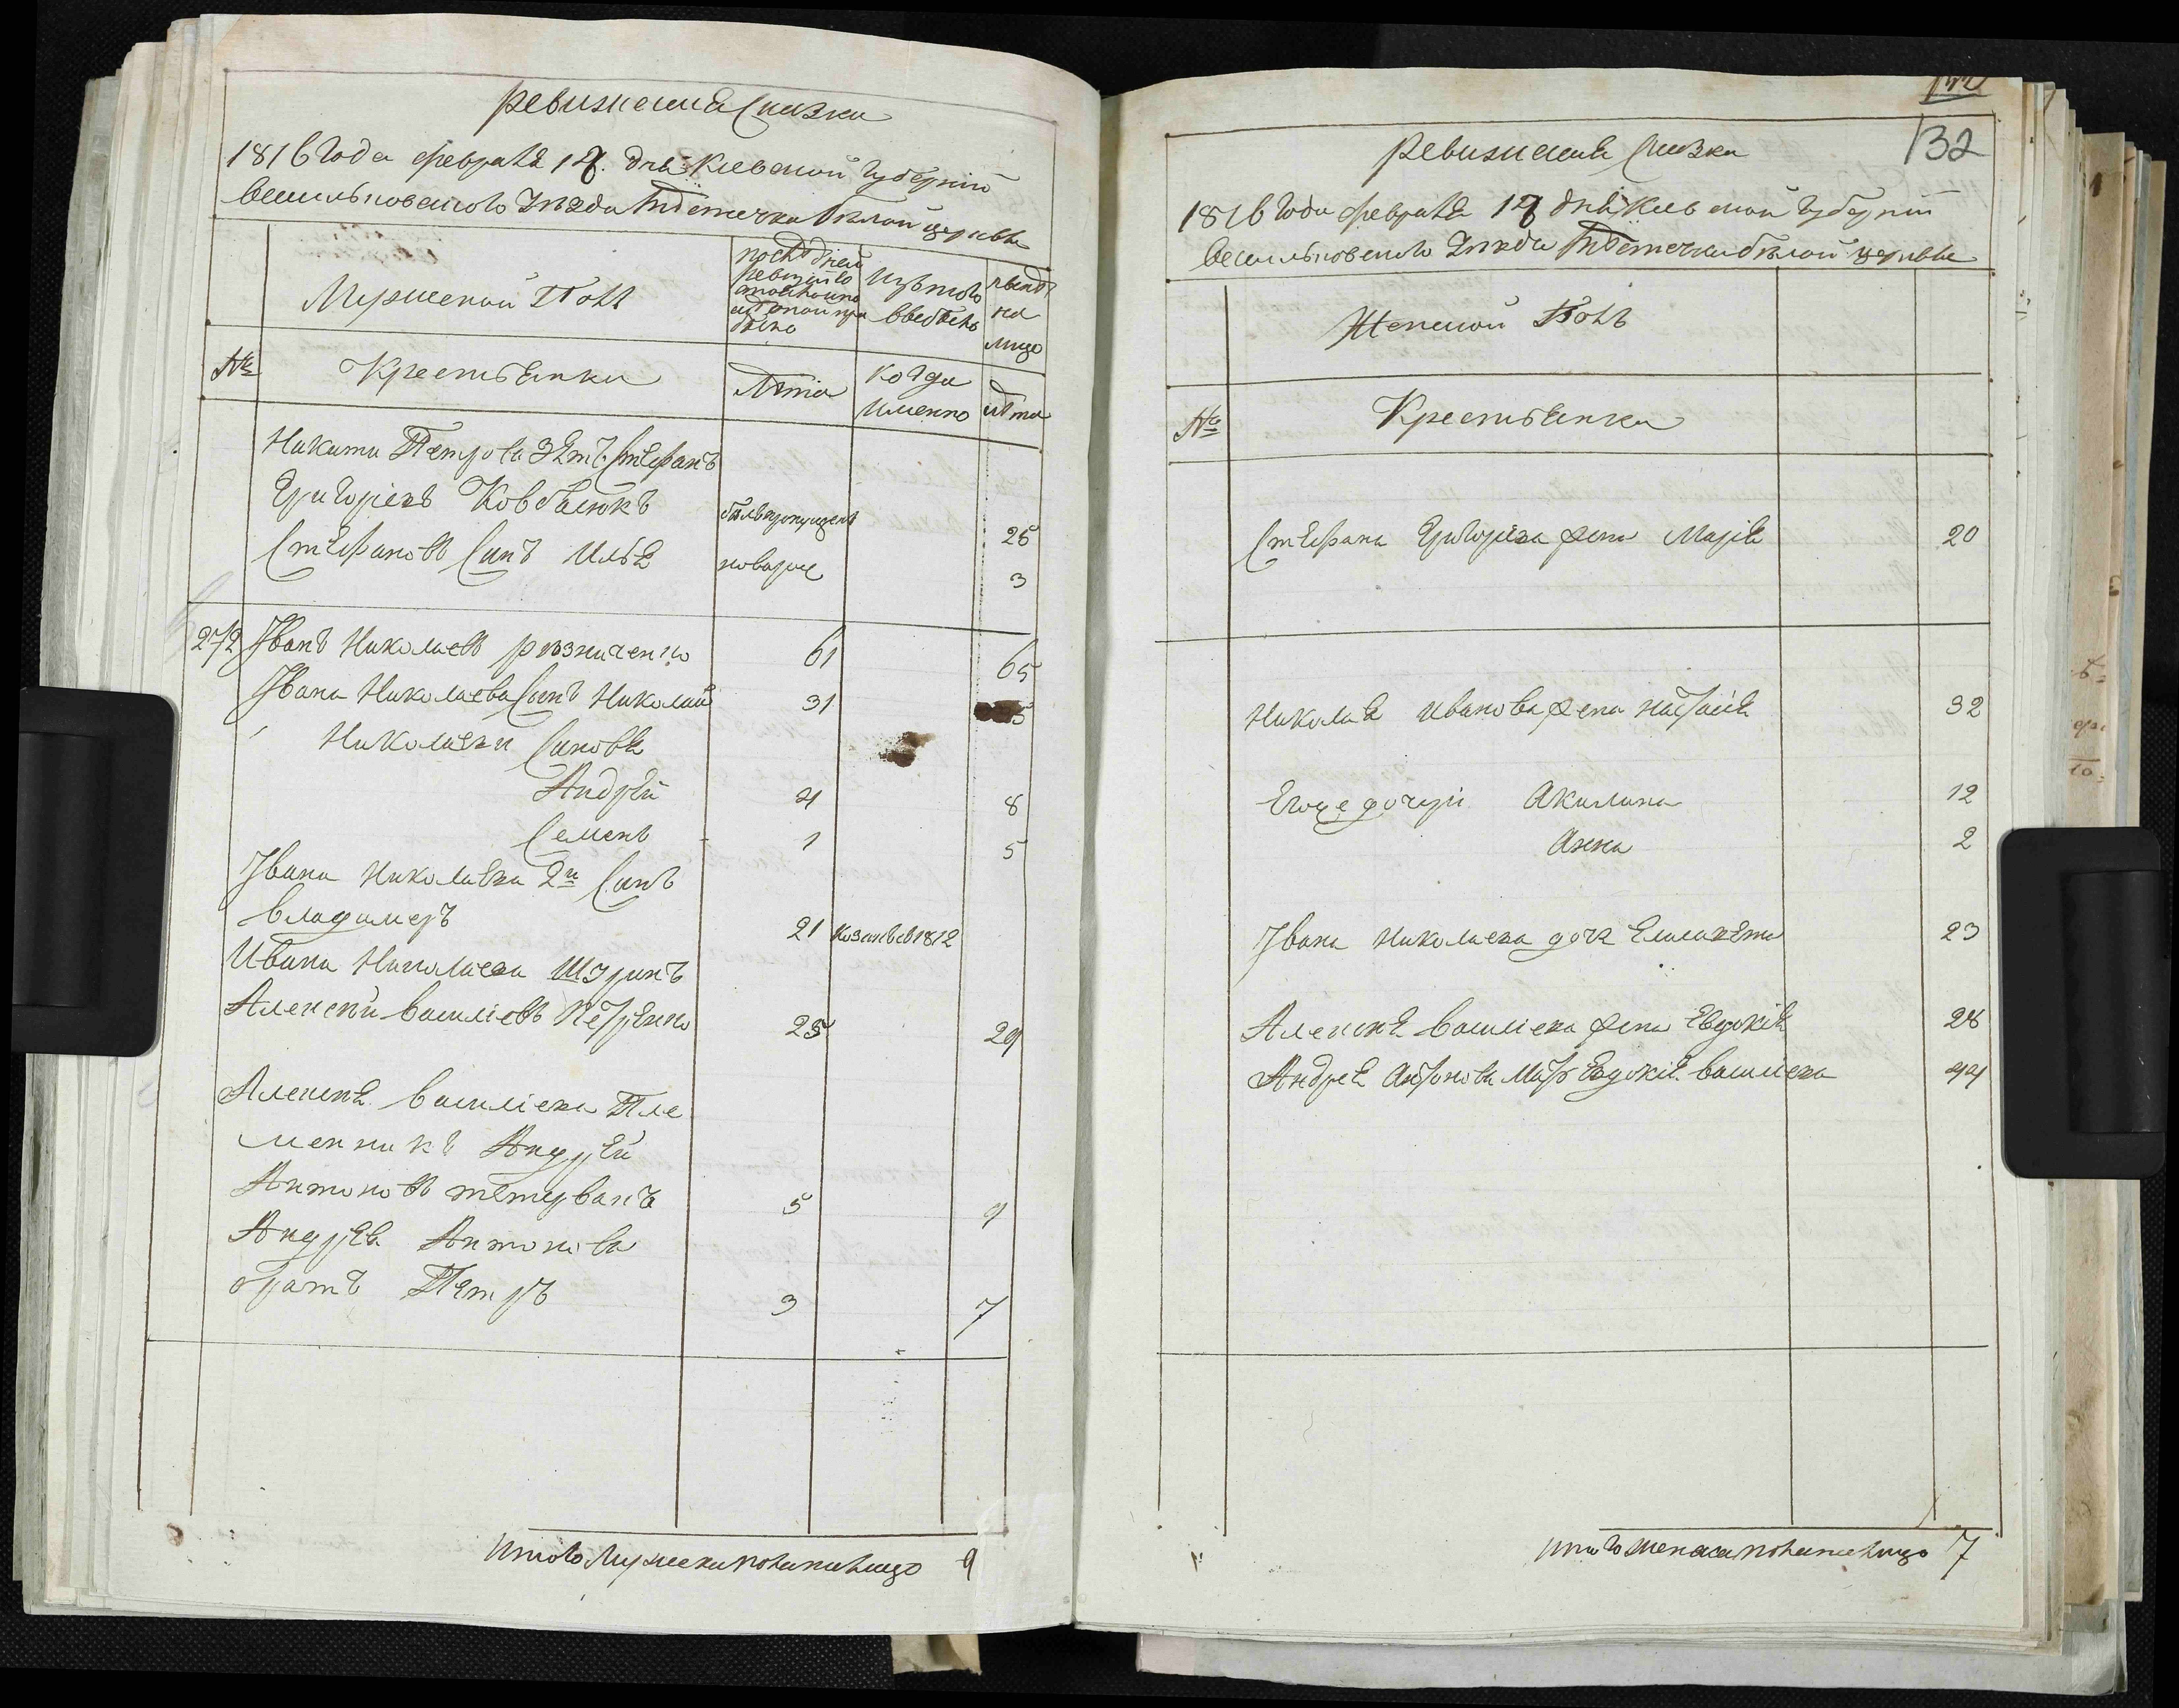 ревизская Сказка
1816 Года февраля 17. дня Киевской Губерніи
Васильковского Уезда Мѣстечка Бѣлой церкви
Мужеской Полъ
Изътого
выбыло
нынѣ
на
лицо
№
Крестьянки
Лѣта
когда
именно
лѣта
Никиты Петрова Зять Стефанъ
Григоріевъ Ковбасюкъ
25
Стефановъ Синъ Илья
новорож
3
272 Іванъ Николаевъ резниченко 61 65
Івана Николаева Сынъ Николай 31 35
Николаевы Синовя
Андрей 4 8
Семенъ 1 5
Івана Николаева 2й Синъ
владимеръ 21 1812
Ивана Николаева Шуринъ
Алексей василіевъ Петренко 25 29
Алексея василіева Пле
менникъ Андрей
Антоновъ 5 9
Андрея Антонова
братъ Петръ 3 7
Итого Мужеска пола налицо 9
132
ревизская Сказка
1816 Года февраля 17 дня Киевской Губерніи
Васильковского Уезда Мѣстечка бѣлой церкви
Женской Полъ
№
Крестьянки
Стефана Григоріева жена Марія 20
Николая иванова жена настасія 32
Егоже дочери Акилина 12
Анна 2
Івана Николаева дочь Елисавета 23
Алексея василіева жена Евдокія 28
Андрея Антонова Мать Евдокія василіева 44
Итого женска пола налицо 7